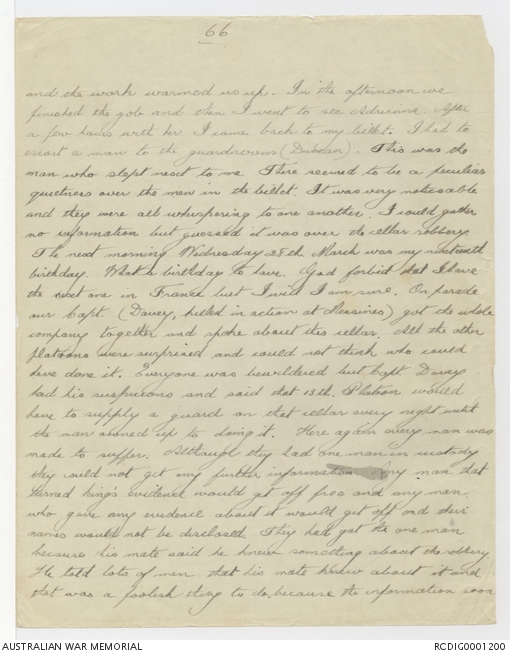 66
and the work warmed us up. In the afternoon we
finished the job and then I went to see Adrienne. After
a few hours with her I came back to my billet. I had to
escort a man to the guardroom (Duncan). This was the
man who slept next to me. There seemed to be a peculiar
quietness over the men in the billet. It was very noticeable
and they were all whispering to one another. I could gather
no information but guessed it was over the cellar robbery.
The next morning Wednesday 28th March was my nineteenth
birthday. What a birthday to have. God forbid that I have
the next one in France but I will I am sure. On parade
our Capt. (Davey, killed in action at Messines) got the whole
company together and spoke about this cellar. All the other
platoons were surprised and could not think who could
have done it. Everyone was bewildered but Capt Davey
had his suspicions and said that 13th. Platoon would
have to supply a guard on that cellar every night until
the man owned up to doing it. Here again every man was
made to suffer. Although they had one man in custody
they could not get any further information any man that
turned King's evidence would get off free and any man
who gave any evidence about it would get off and their
names would not be disclosed. They had got the one man
because his mate said he knew something about the robbery.
He told lots of men that his mate knew about it and
that was a foolish thing to do because the information soon
AUSTRALIAN WAR MEMORIAL
RCDIG0001200